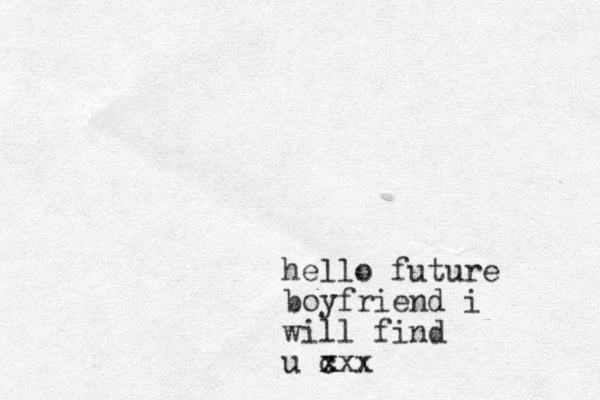 hello future
boyfriend i
will find
u xxx